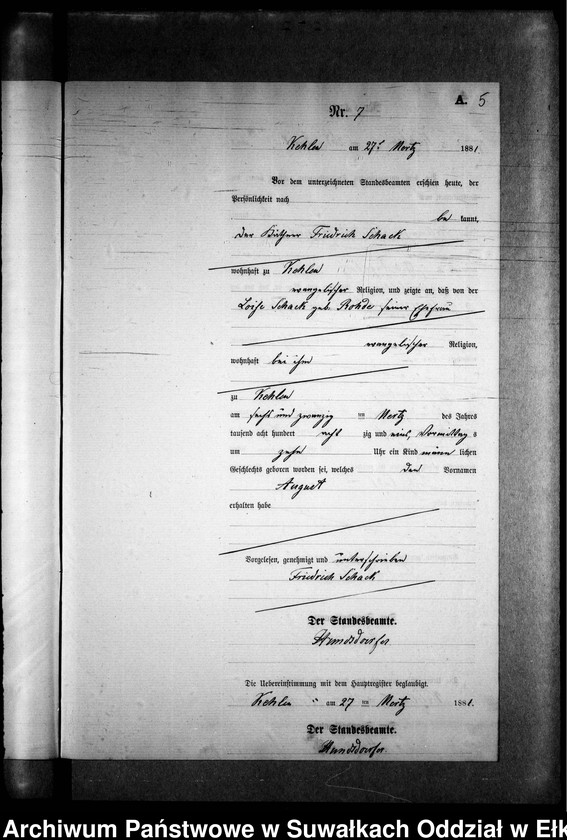 A. 5
Nr. 7
Kehlen am 27t Mertz 1881
Vor dem unterzeichneten Standesbeamten erschien heute, der
Persönlichkeit nach
be kannt,
der Käthner Friedrich Schack
wohnhaft zu Kehlen
evangelischer Religion, und zeigte an, daß von der
Loise Schack geb. Rohde seiner Ehefrau
evangelischer Religion,
wohnhaft bei ihm
zu Kehlen
am sechs und zwanzig ten Mertz des Jahres
tausend acht hundert acht zig und eins, Vormittag s
um zehn Uhr ein Kind männ lichen
Geschlechts geboren worden sei, welches den Vornamen
August
erhalten habe
Vorgelesen, genehmigt und unterschrieben
Friedrich Schack
Der Standesbeamte.
Die Uebereinstimmung mit dem Hauptregister beglaubigt.
Kehlen " am 27 ten Mertz 1881.
Der Standesbeamte.
Archiwum Państwowe w Suwałkach Oddział w Ełk